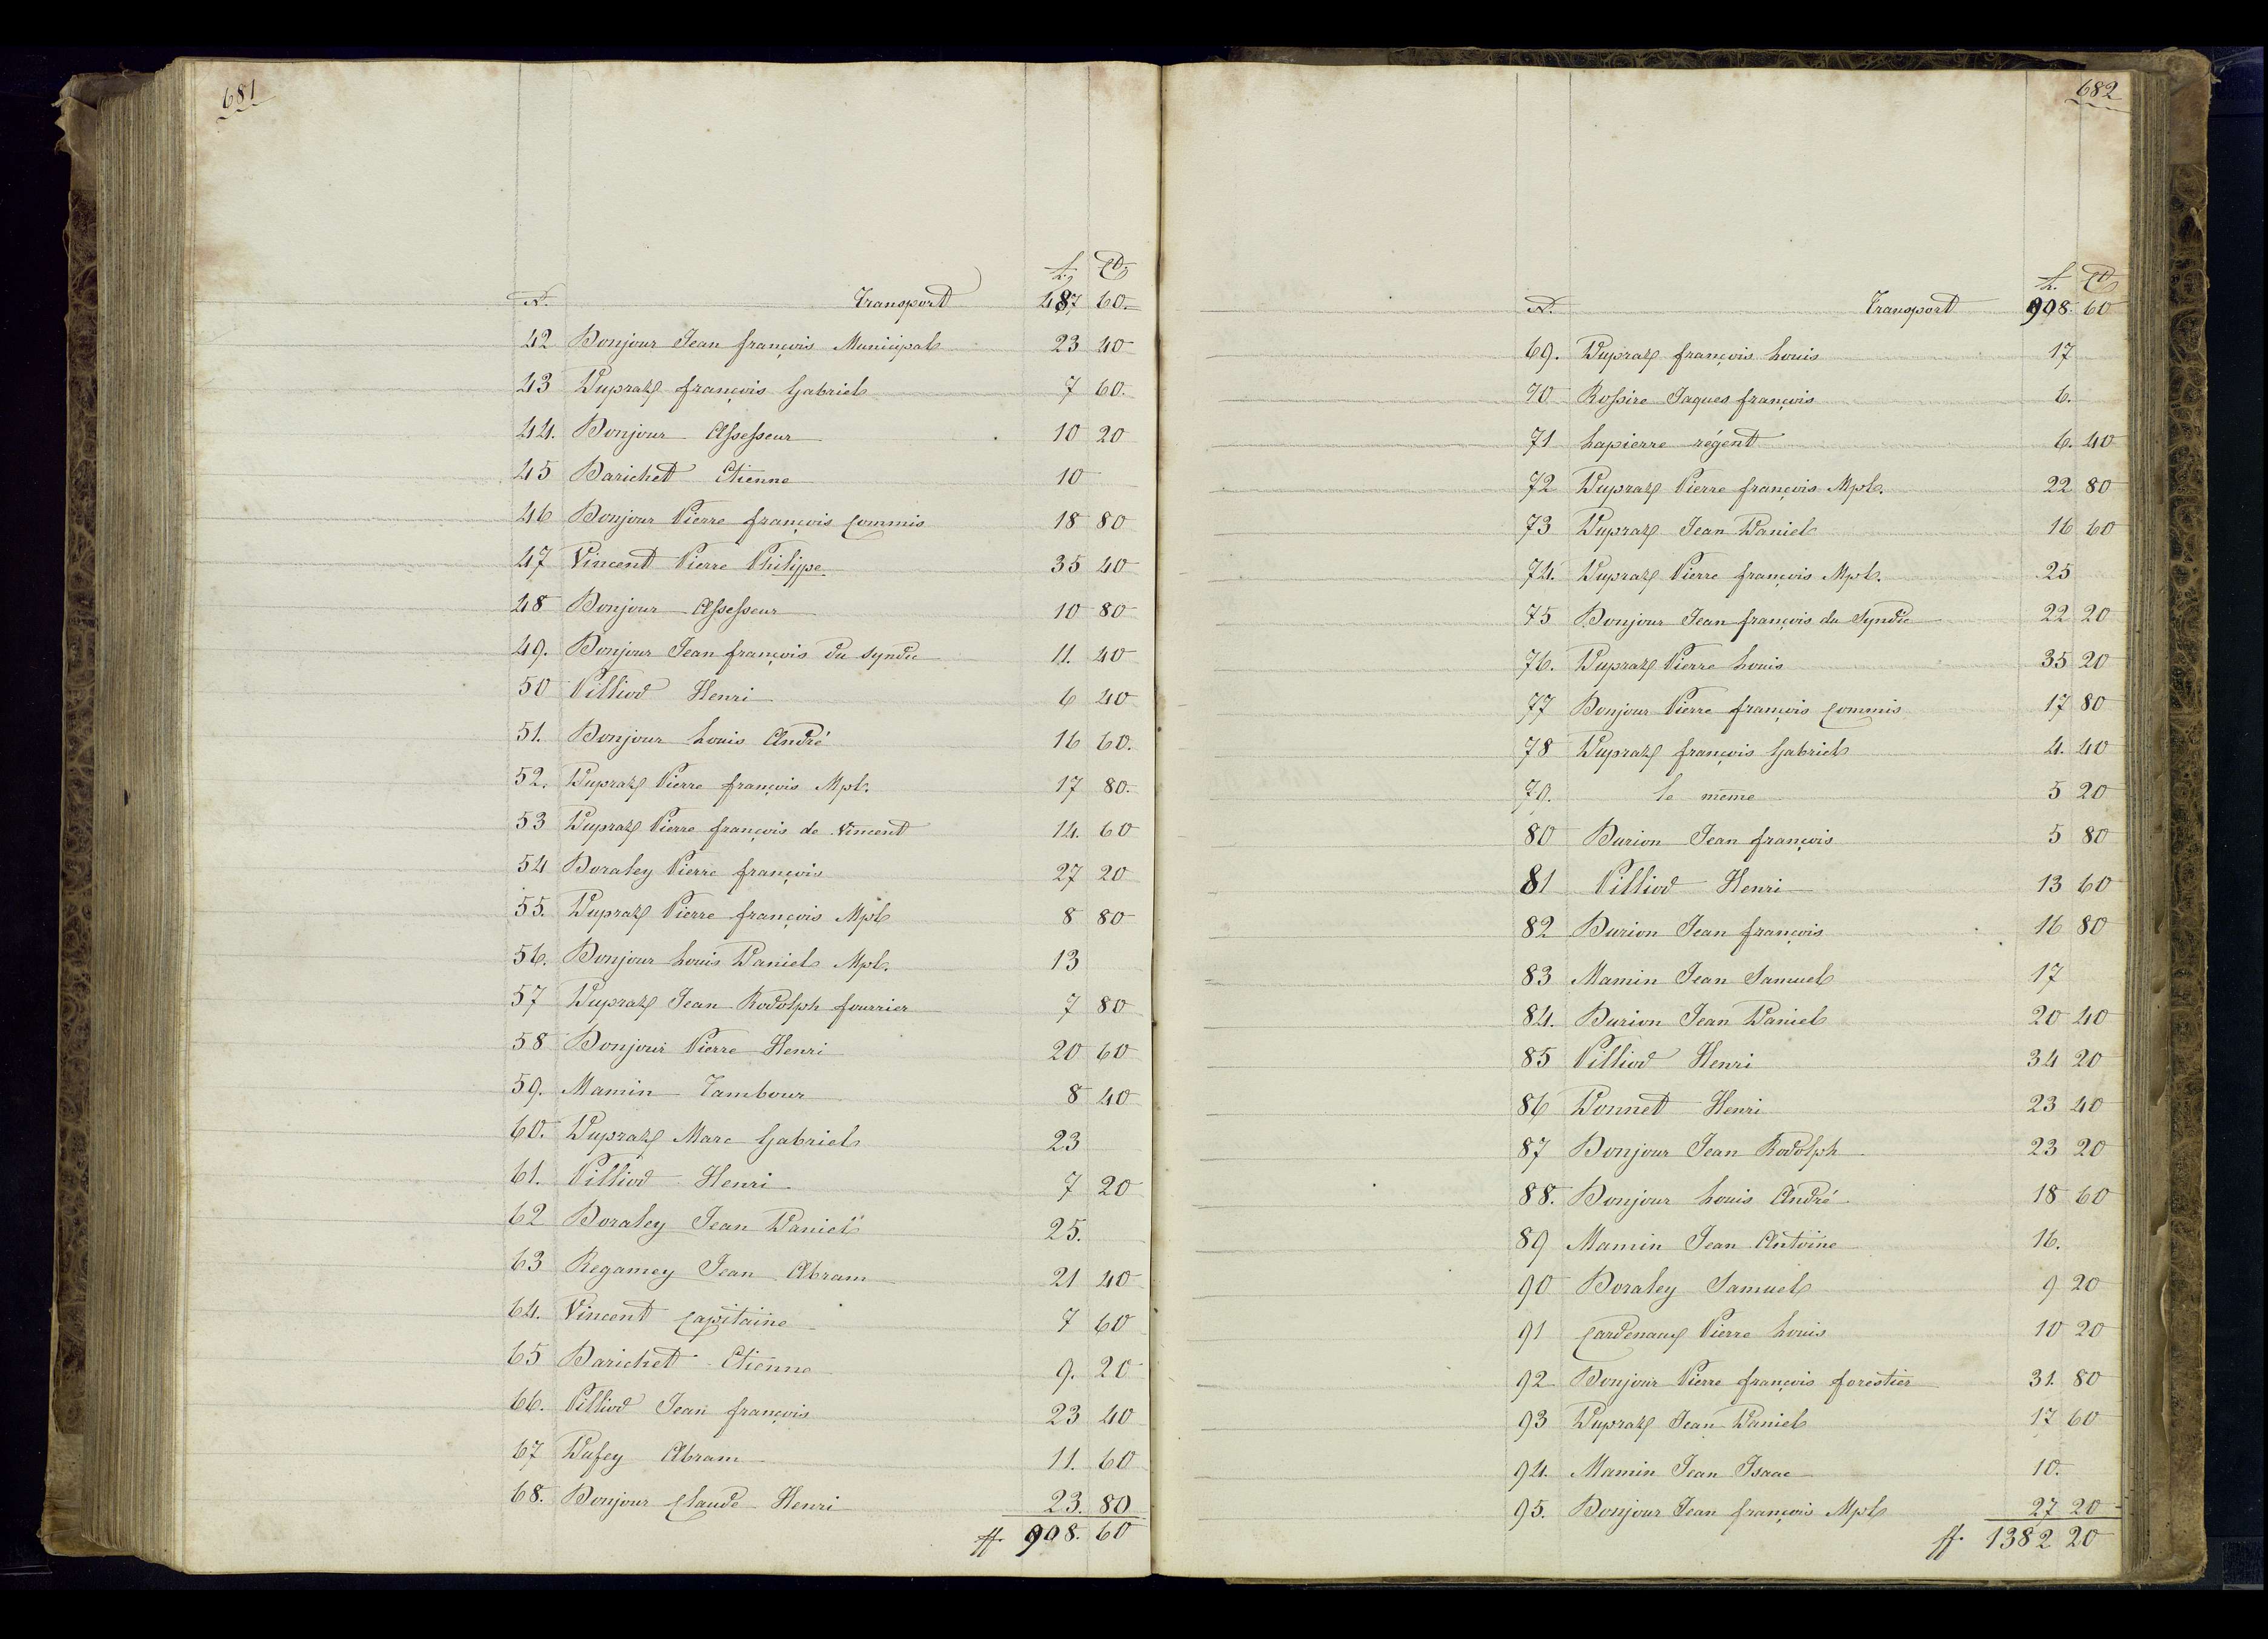 681
L. Ct
N. Transport 487 60.
42 Bonjour Jean françois Municipal 23 40
43 Dupraz françois Gabriel 7 60.
44. Bonjour Assesseur 10 20
45 Barichet Etienne 10
46 Bonjour Pierre françois Commis 18 80
47 Vincent Pierre Philippe 35 40
48 Bonjour Assesseur 10 80
49. Bonjour Jean françois du Syndic 11. 40
50 Pilliod Henri 6 40
51. Bonjour Louis André 16 60.
52. Dupraz Pierre françois Mpl. 17 80.
53 Dupraz Pierre françois de Vincent 14. 60
54 Doraley Pierre françois 27 20
55. Dupraz Pierre françois Mpl 8 80
56. Bonjour Louis Daniel Mpl. 13
57 Dupraz Jean Rodolph fourrier 7 80
58 Bonjour Pierre Henri 20 60
59. Mamin Tambour 8 40
60. Dupraz Marc Gabriel 23
61. Pilliod Henri 7 20
62 Doraley Jean Daniel 25.
63 Regamey Jean Abram 21 40
64. Vincent Capitaine 7 60
65 Barichet Etienne 9. 20
66. Pilliod Jean françois 23 40
67 Dufey Abram 11. 60
68. Bonjour Claude Henri 23. 80
ff. 908. 60
682
L. Ct
N. Transport 908. 60
69. Dupraz françois Louis 17
70 Rossire Jaques françois 6.
71 Lapierre régent 6. 40
72 Dupraz Pierre françois Mpl. 22 80
73 Dupraz Jean Daniel 16 60
74. Dupraz Pierre françois Mpl. 25
75 Bonjour Jean françois du Syndic 22 20
76. Dupraz Pierre Louis 35 20
77 Bonjour Pierre françois Commis 17 80
78 Dupraz françois Gabriel 4. 40
79. le même 5 20
80 Burion Jean françois 5 80
81 Pilliod Henri 13 60
82 Burion Jean françois 16 80
83 Mamin Jean Samuel 17
84. Burion Jean Daniel 20 40
85 Pilliod Henri 34 20
86 Donnet Henri 23 40
87 Bonjour Jean Rodolph 23 20
88. Bonjour Louis André 18 60
89 Mamin Jean Antoine 16.
90 Doraley Samuel 9 20
91 Cardenaux Pierre Louis 10 20
92 Bonjour Pierre françois forestier 31. 80
93 Dupraz Jean Daniel 17 60
94. Mamin Jean Isaac 10.
95. Bonjour Jean françois Mpl 27 20
ff. 1382 20